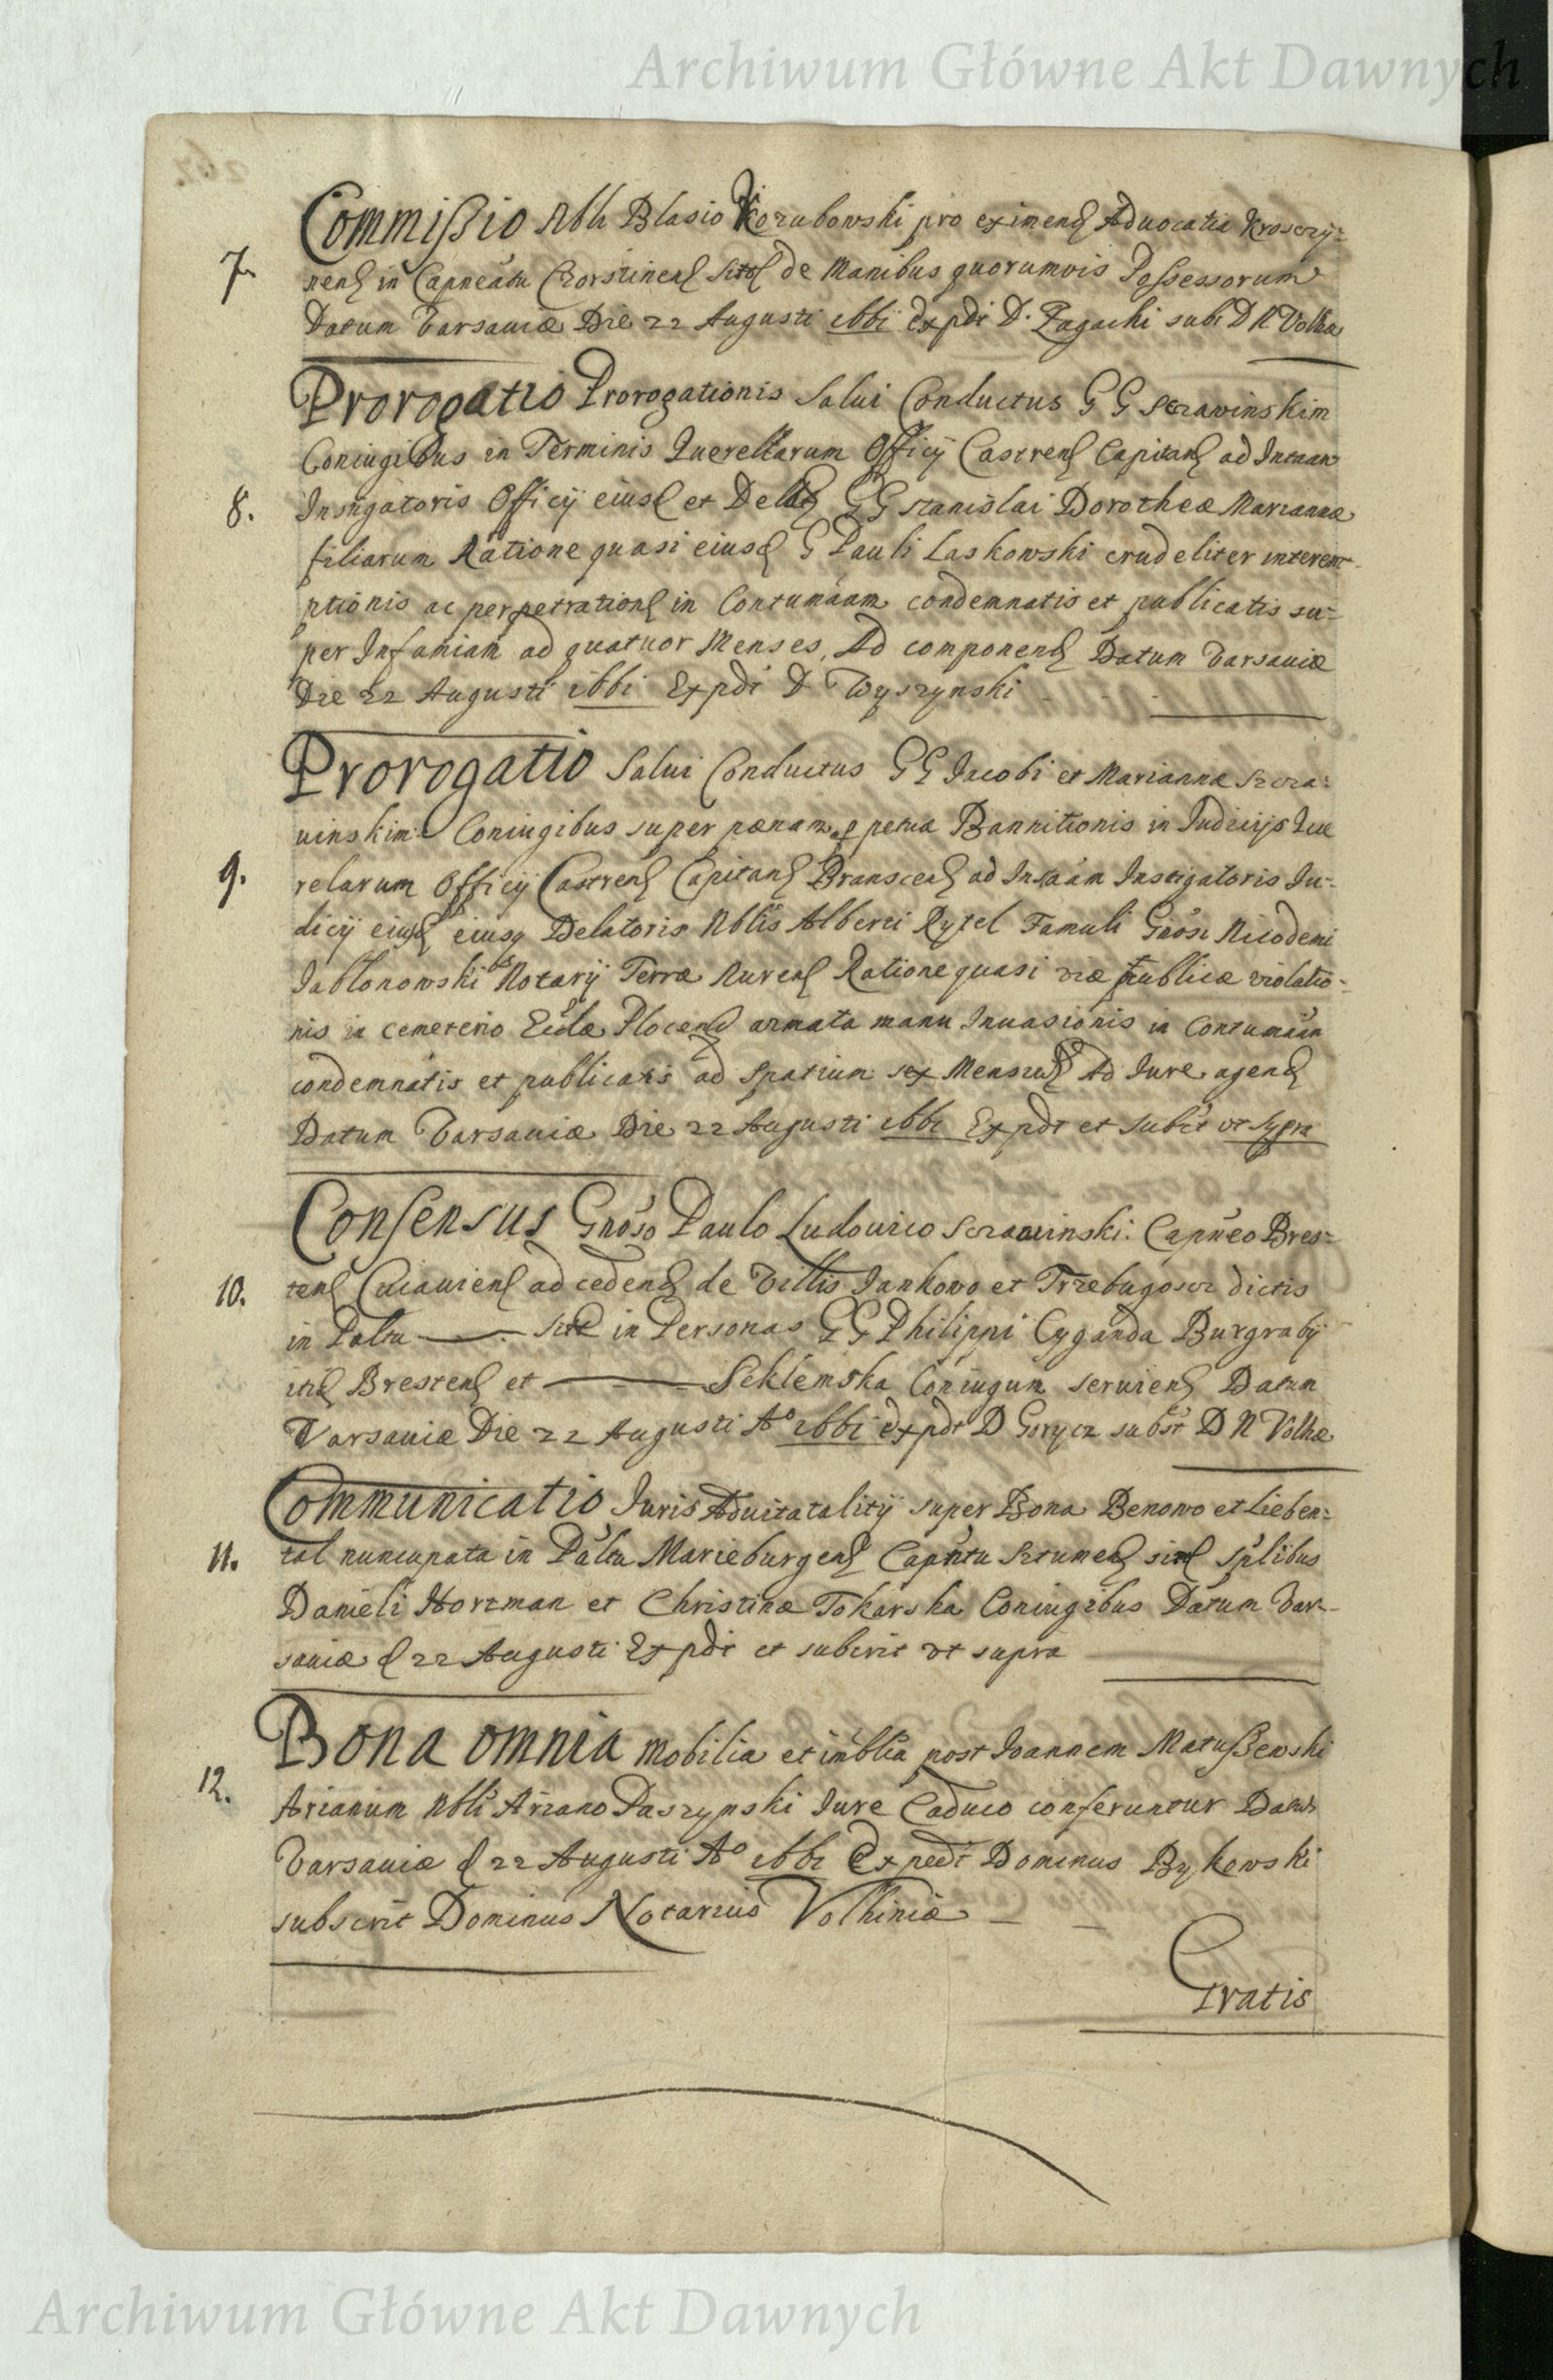 Archiwum Główne Akt Dawnych
Commißio Nbli Blasio Kozubowski pro eximend Aduocatia
7. in Capneatu de Manibus quorumvis Possessorum
Datum Varsaviæ Die 22 Augusti 1661 Expdt D. Zagacki subt D N Volhæ
Prorogatio Prorogationis Salui Conductus G G
Coniugibus in Terminis Querellarum Officÿ Castren Capitan ad
8. Instigatoris Officÿ eiusd et G G Stanislai Dorotheæ Mariannæ
filiarum Ratione quasi eiusd G Pauli Laskowski crudeliter interem-
ptionis ac perpetration in Contumaam condemnatis et publicatis su=
per Infamiam ad quatuor Menses, Ad componend Datum Varsauiæ
Die 22 Augusti 1661 Expdt D Wyszynski
Prorogatio Salui Conductus G G Jacobi et Mariannæ
Coniugibus super pænam Bannitionis in Judicÿs Que
9. relarum Officÿ Castren Capitan Branscen ad Instaam Instigatoris Ju=
dicÿ eiusd eiusq Delatoris Nblis Alberti Rytel Famuli Gnosi Nicodemi
Jablonowski Notarÿ Terræ Nuren Ratione quasi viæ publicæ violatio=
nis in cemeterio Eccłæ Plocen armata manu Inuasionis in Contumaam
condemnatis et publicatis ad spatium sex Mensium Ad Jure agend
Datum Varsauiæ Die 22 Augusti 1661 Expdt et subst vt supra
Consensus Gnoso Paulo Ludouico Capneo Bres=
10. ten Cuiauien ad cedend de Villis Jankowo et dictis
in Paltu in Personas G G Philippi Cyganda Burgrabÿ
Bresten et Seklemska Coniugum seruien Datum
Varsauiæ Die 22 Augusti Aº 1661 Expdt D Gorycz subst D N Volhæ
Communicatio Juris Aduitalitÿ super Bona Benowo et Lieben=
11. tal nuncupata in Paltu Marieburgen Capntu Sztumen Splibus
Danieli Hortman et Christinæ Tokarska Coniugibus Datum Var-
sauiæ d 22 Augusti Expdt et subcrit vt supra
Bona omnia mobilia et imblia post Joannem Matußewski
12. Arianum Nbli Paszynski Jure Caduco conferuntur Datum
Varsauiæ d 22 Augusti Aº 1661 Expedt Dominus Bykowski
subscrit Dominus Notarius Volhiniæ
Gratis
Archiwum Główne Akt Dawnych